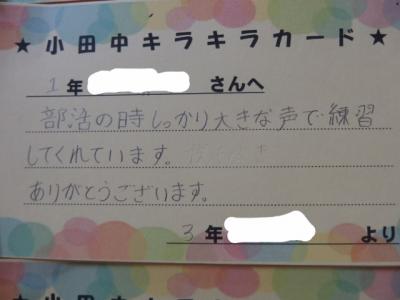 ★小田中キラキラカード★
1年 さんへ
部活の時しっかり大きな声で練習
してくれています。
ありがとうございます。
3年 より